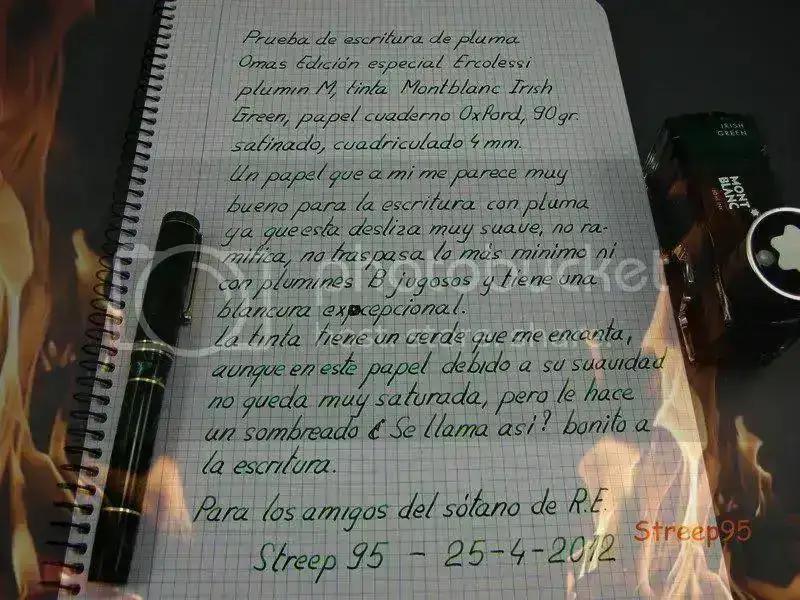 Prueba de escritura de pluma
Omas Edición especial Ercolessi
plumin M, tinta Montblanc Irish
Green, papel cuaderno Oxford, 90gr.
satinado, cuadriculado 4 mm.
Un papel que a mi me parece muy
bueno para la escritura con pluma
ya que esta desliza muy suave, no ra-
mifica, no traspasa lo más minimo ni
con plumines B jugosos y tiene una
blancura excepcional.
La tinta tiene un verde que me encanta,
aunque en este papel debido a su suavidad
no queda muy saturada, pero le hace
un sombreado ¿Se llama asi? bonito a
la escritura.
Para los amigos del sótano de R.E.
Streep 95 - 25-4-2012
Streep95
IRISH
GREEN
MONT
BLANC
photobucket